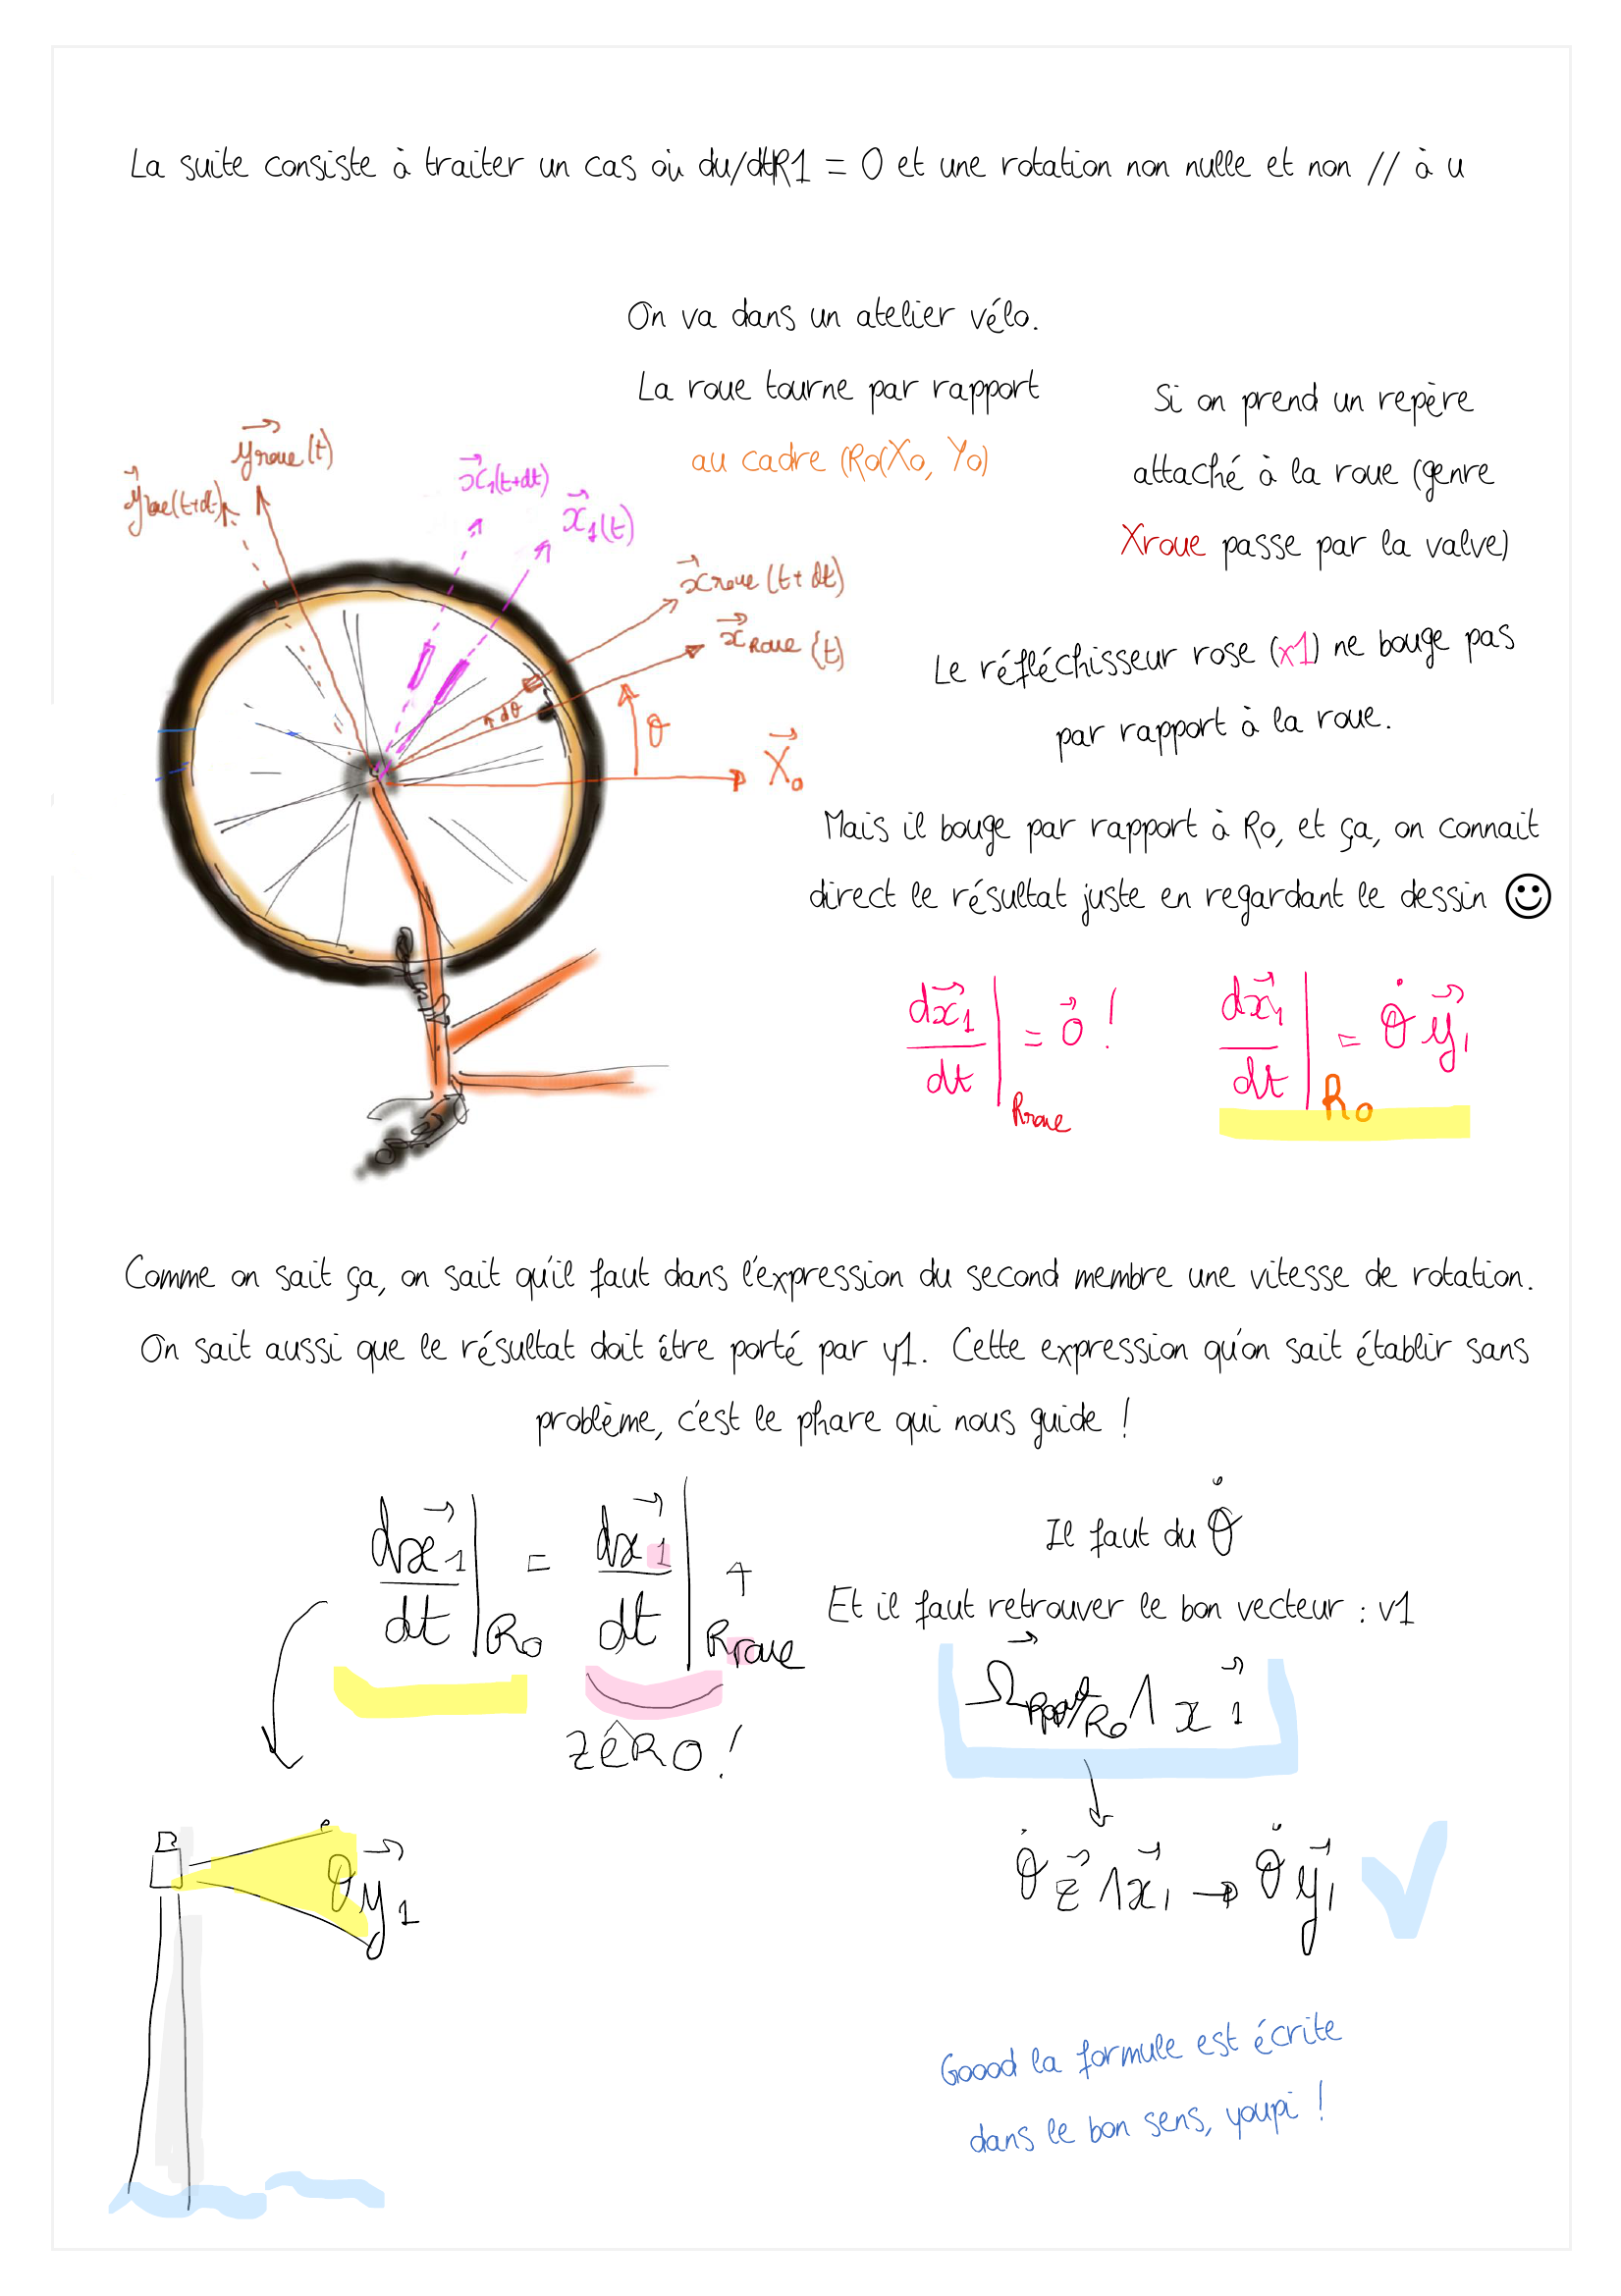 La suite consiste à traiter un cas où du/dtR1 = 0 et une rotation non nulle et non // à u
On va dans un atelier vélo.
La roue tourne par rapport
au cadre (Ro(Xo, Yo)
Si on prend un repère
attaché à la roue (genre
Xroue passe par la valve)
y⃗roue(t)
y⃗roue(t+dt)
x⃗1(t+dt)
x⃗1(t)
x⃗roue(t+dt)
x⃗Roue(t)
dθ
θ
X⃗o
Le réfléchisseur rose (x1) ne bouge pas
par rapport à la roue.
Mais il bouge par rapport à Ro, et ça, on connait
direct le résultat juste en regardant le dessin ☺
dx⃗1/dt|Rroue = o⃗ !
dx⃗1/dt|Ro = θ̇ y⃗1
Comme on sait ça, on sait qu'il faut dans l'expression du second membre une vitesse de rotation.
On sait aussi que le résultat doit être porté par y1. Cette expression qu'on sait établir sans
problème, c'est le phare qui nous guide !
dx⃗1/dt|Ro = dx⃗1/dt|Rroue +
Il faut du θ̇
Et il faut retrouver le bon vecteur : v1
/Ro ∧ x⃗1
ZêRO !
θ̇ y⃗1
θ̇ z⃗ ∧ x⃗1 → θ̇ y⃗1
Goood la formule est écrite
dans le bon sens, youpi !